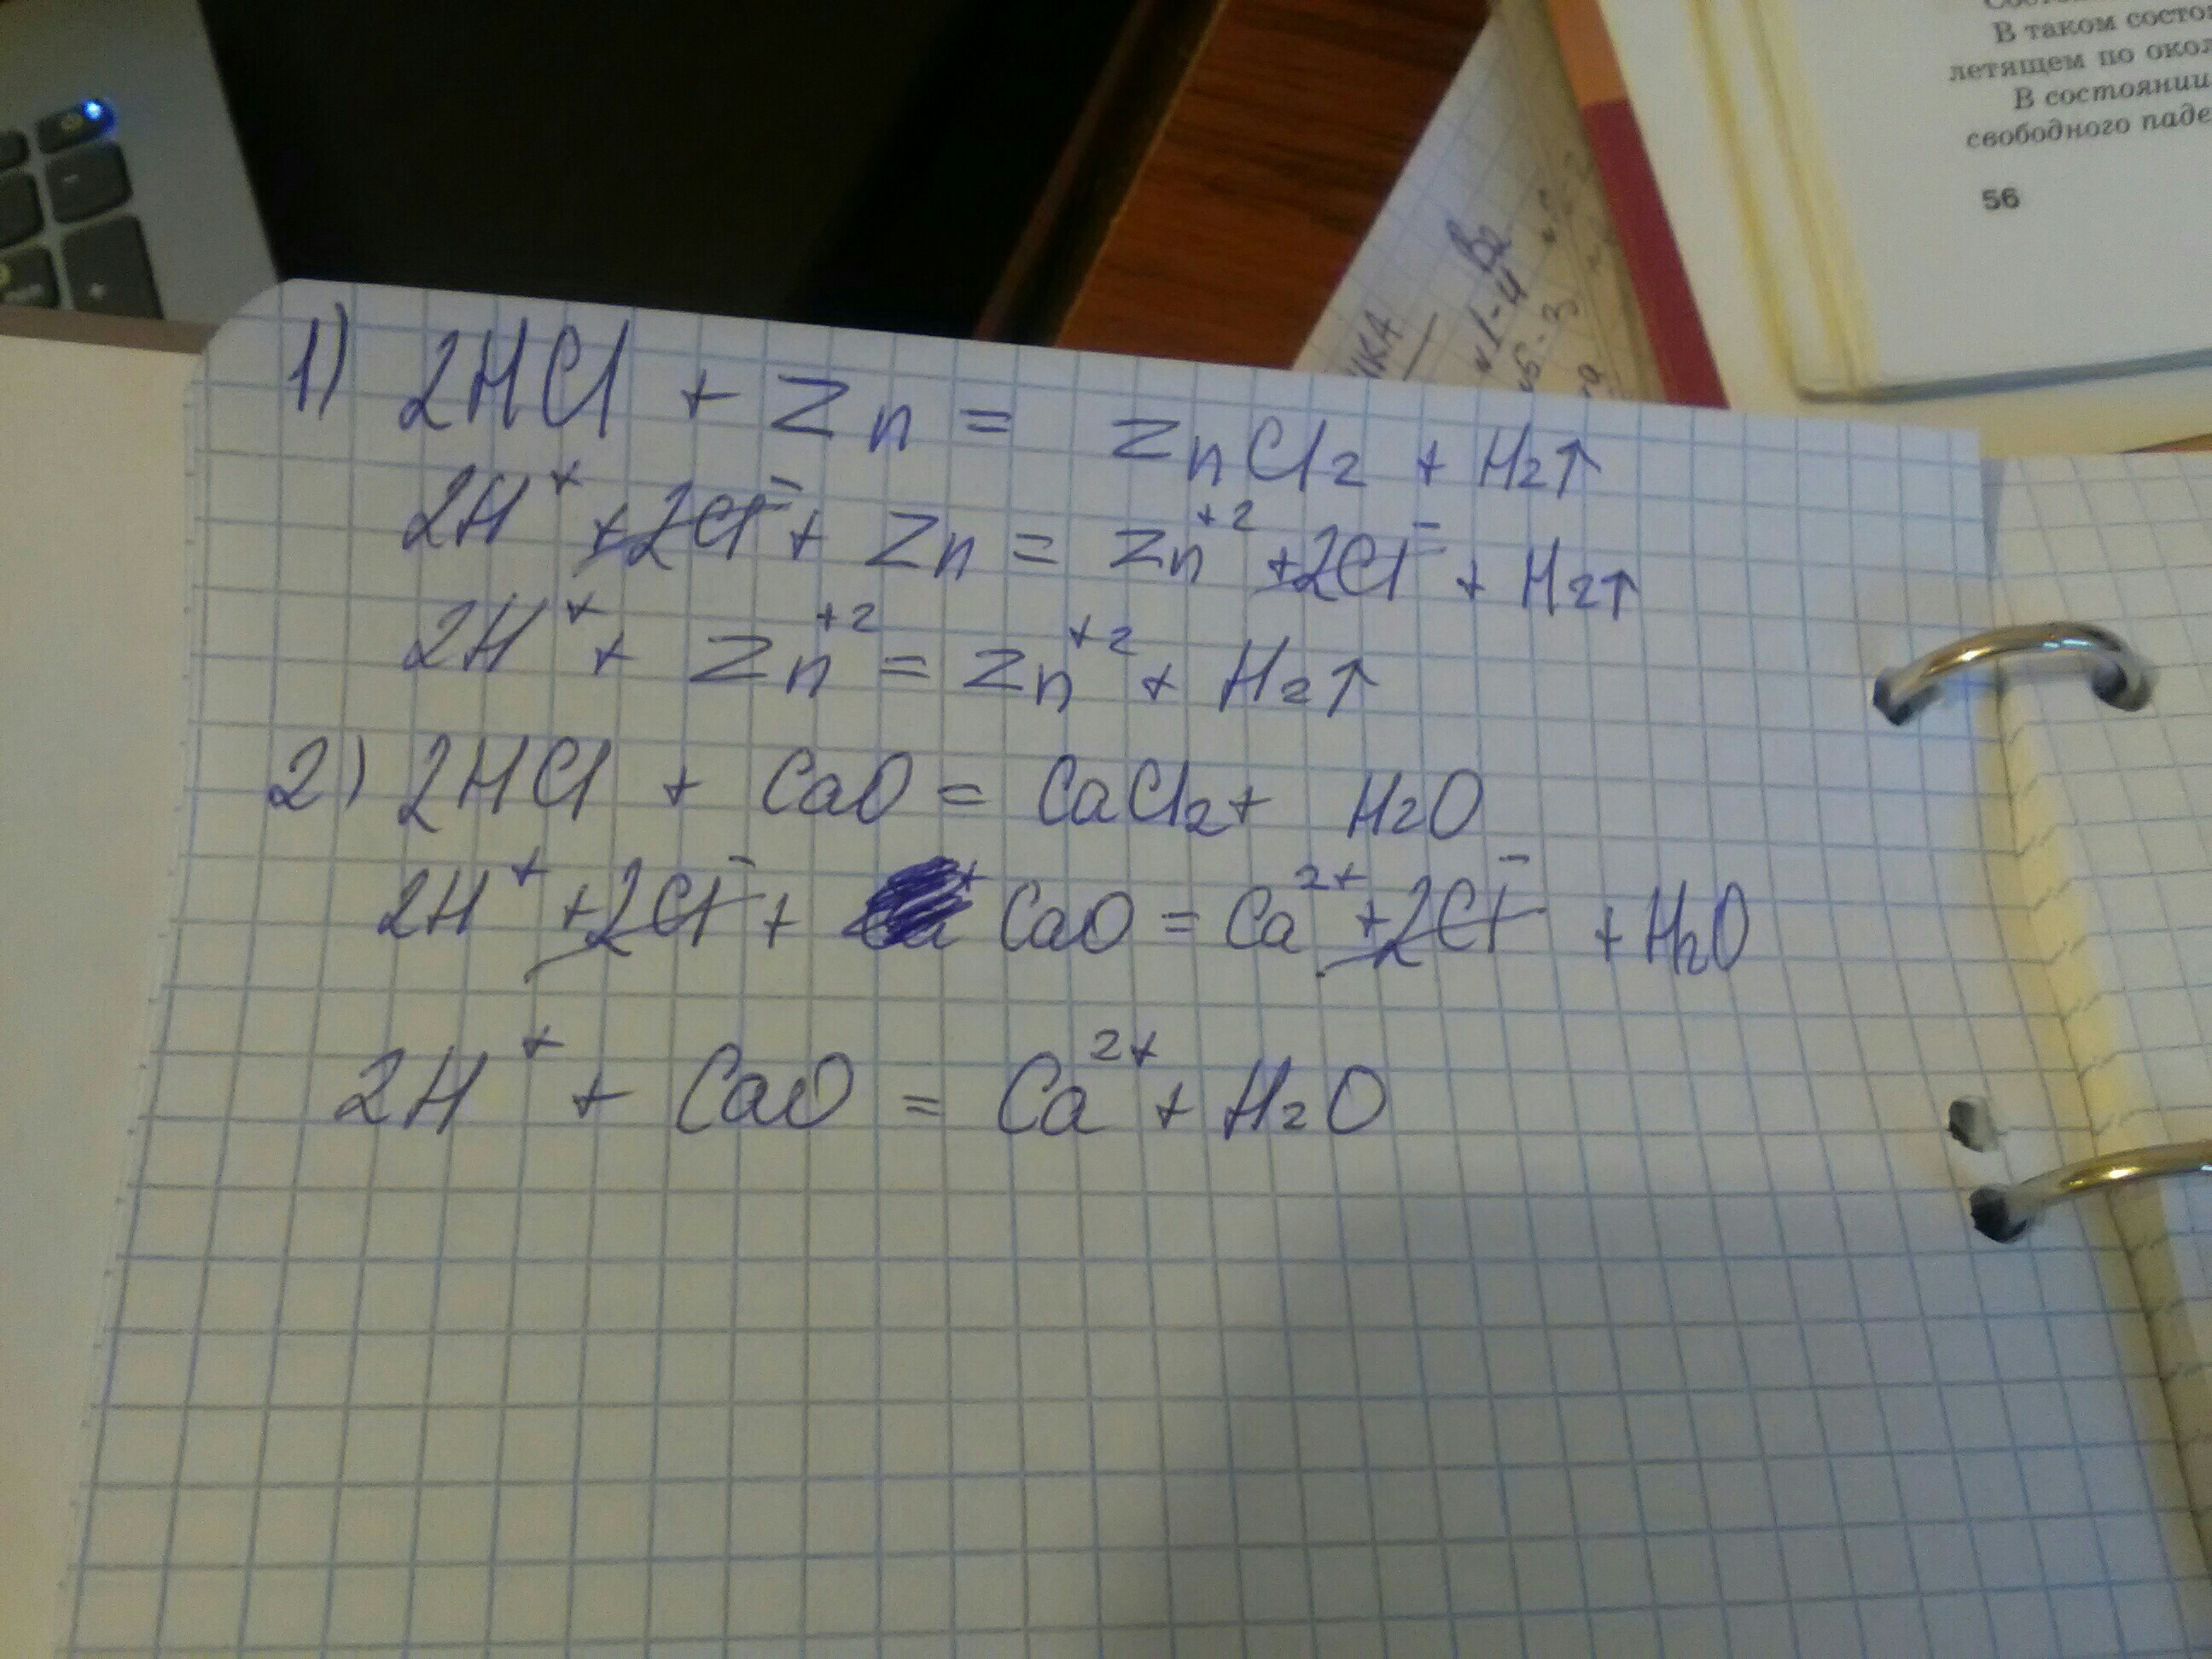 В таком состо
летящем по окол
В состоянии
свободного паде
56
В2
1) 2HCl + Zn = ZnCl₂ + H₂↑
2H⁺ + 2Cl⁻ + Zn = Zn⁺² + 2Cl⁻ + H₂↑
2H⁺ + Zn⁺² = Zn⁺² + H₂↑
2) 2HCl + CaO = CaCl₂ + H₂O
2H⁺ + 2Cl⁻ + CaO = Ca²⁺ + 2Cl⁻ + H₂O
2H⁺ + CaO = Ca²⁺ + H₂O